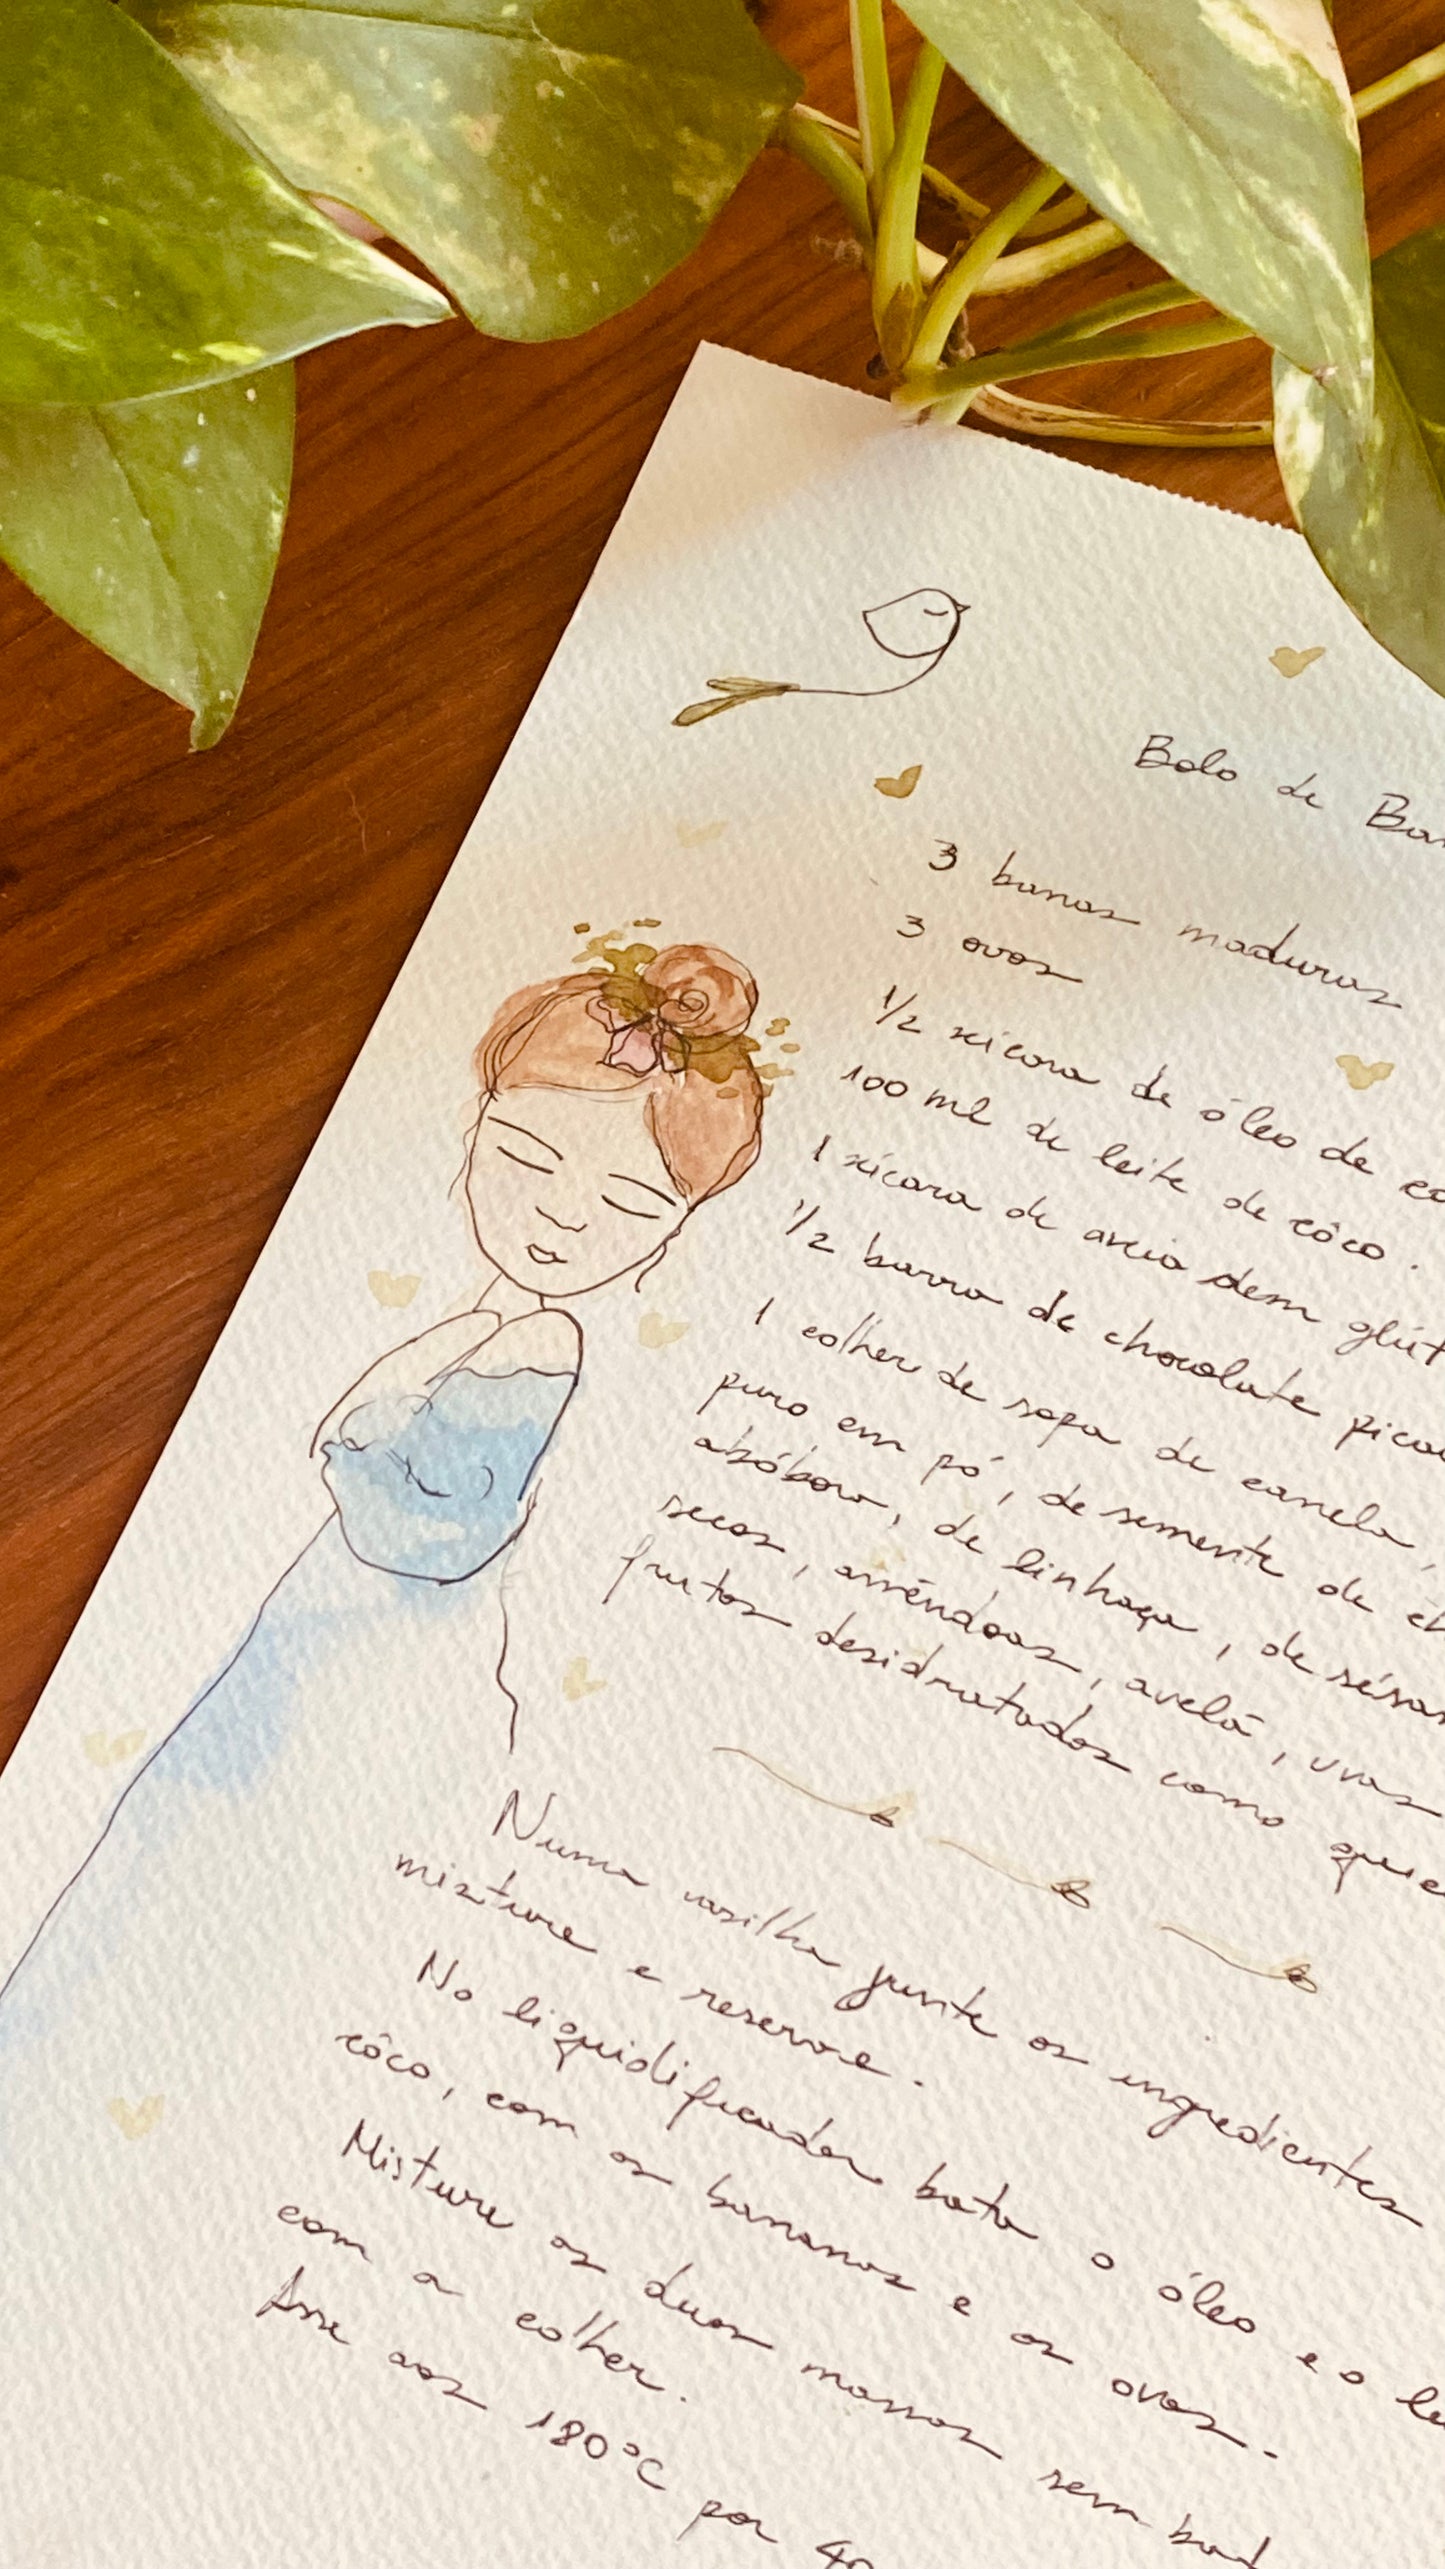 Bolo de Ban
3 banas maduras
3 ovos
1/2 xícara de óleo de co
100 ml de leite de côco.
1 xícara de aveia sem glút
1/2 barra de chocolate pica
1 colher de sopa de canela,
puro em pó, de semente de
abóbora, de linhaça, de sésam
secos, amêndoas, avelã, uvas
frutos desidratados como quise
Numa vasilha junte os ingredientes
misture e reserve.
No liquidificador bata o óleo e o le
côco, com as bananas e os ovos.
Misture as duas massas sem bat
com a colher.
Asse aos 180°C por 40